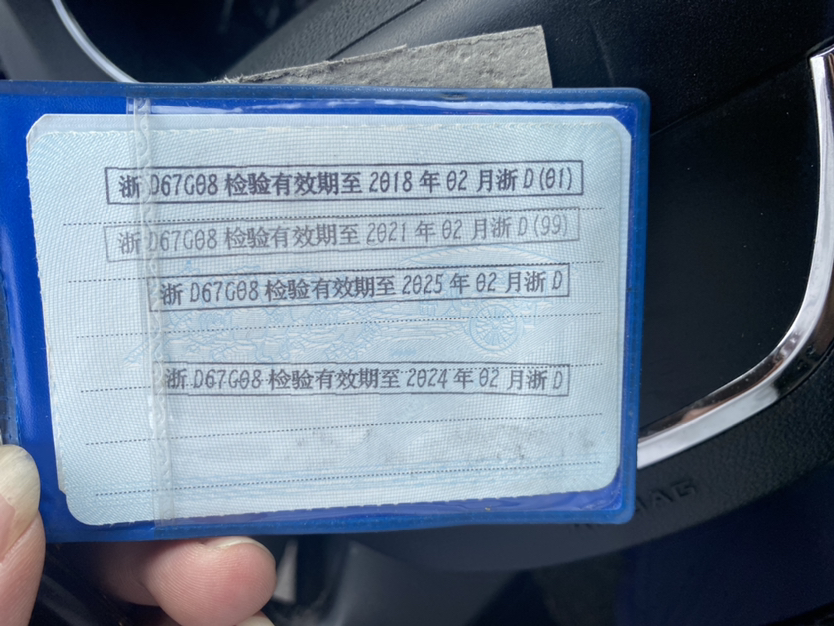 浙D67G08检验有效期至2018年02月浙D(01)
浙D67G08检验有效期至2021年02月浙D(99)
浙D67G08检验有效期至2025年02月浙D
浙D67G08检验有效期至2024年02月浙D